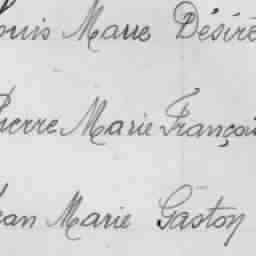 ouis Marie Désiré
Pierre Marie Françoi
ean Marie Gaston